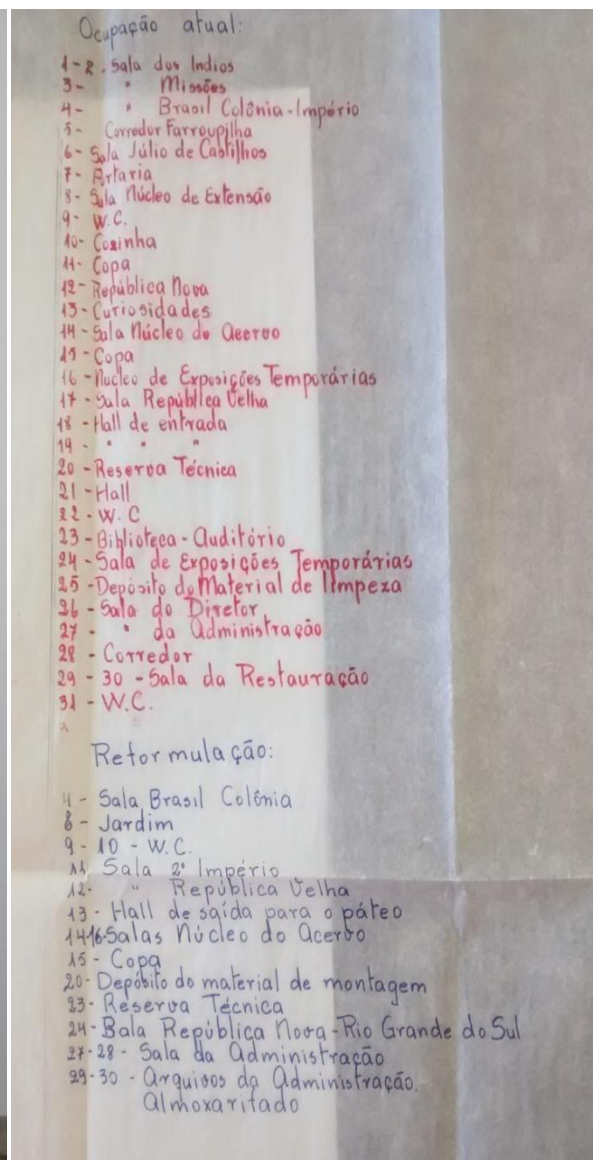 Ocupação atual:
1-2. Sala dos Indios
3- " Missões
4- " Brasil Colônia-Império
5- Corredor Farroupilha
6- Sala Júlio de Castilhos
7- Artaria
8- Sala Núcleo de Extensão
9- W.C.
10- Cozinha
11- Copa
12- República Nova
13- Curiosidades
14- Sala Núcleo do Acervo
15- Copa
16- Nucleo de Exposições Temporárias
17- Sala República Velha
18- Hall de entrada
19- " " "
20- Reserva Técnica
21- Hall
22- W.C
23- Biblioteca-Auditório
24- Sala de Exposições Temporárias
25- Depósito do Material de limpeza
26- Sala do Diretor
27- " da Administração
28- Corredor
29-30- Sala da Restauração
31- W.C.
Reformulação:
4- Sala Brasil Colônia
8- Jardim
9-10- W.C.
11 Sala 2º Império
12- " República Velha
13- Hall de saída para o páteo
14-16-Salas Núcleo do Acervo
15- Copa
20- Depósito do material de montagem
23- Reserva Técnica
24- Sala República Nova-Rio Grande do Sul
27-28- Sala da Administração
29-30- Arquivos da Administração.
Almoxarifado